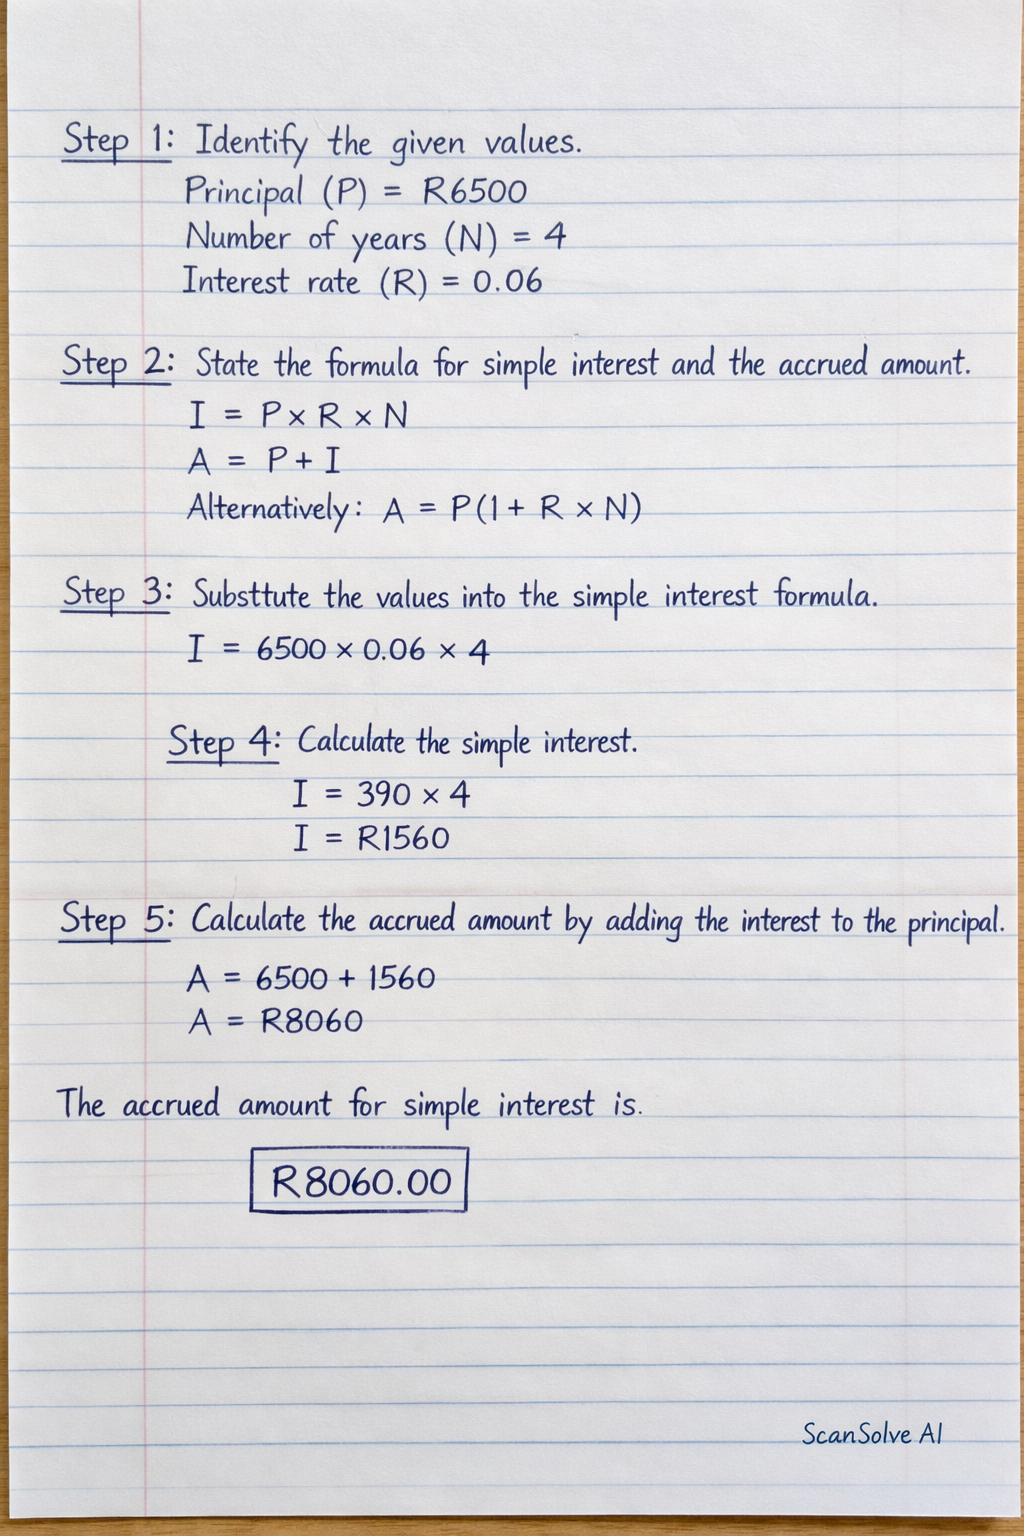 Step 1: Identify the given values.
Principal (P) = R6500
Number of years (N) = 4
Interest rate (R) = 0.06
Step 2: State the formula for simple interest and the accrued amount.
I = P × R × N
A = P + I
Alternatively: A = P(1 + R × N)
Step 3: Substtute the values into the simple interest formula.
I = 6500 × 0.06 × 4
Step 4: Calculate the simple interest.
I = 390 × 4
I = R1560
Step 5: Calculate the accrued amount by adding the interest to the principal.
A = 6500 + 1560
A = R8060
The accrued amount for simple interest is.
R8060.00
ScanSolve AI